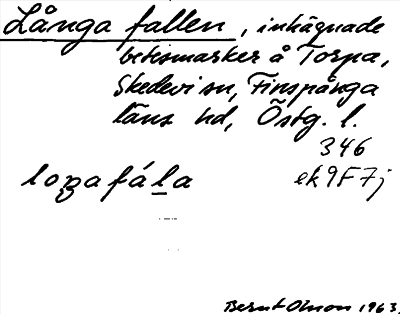 Långa fallen, inhägnade
betesmarker å Torpa,
Skedevi sn, Finspånga
läns hd, Östg. l.
346
loŋafála ek9F7j
Bernt Olsson 1963.